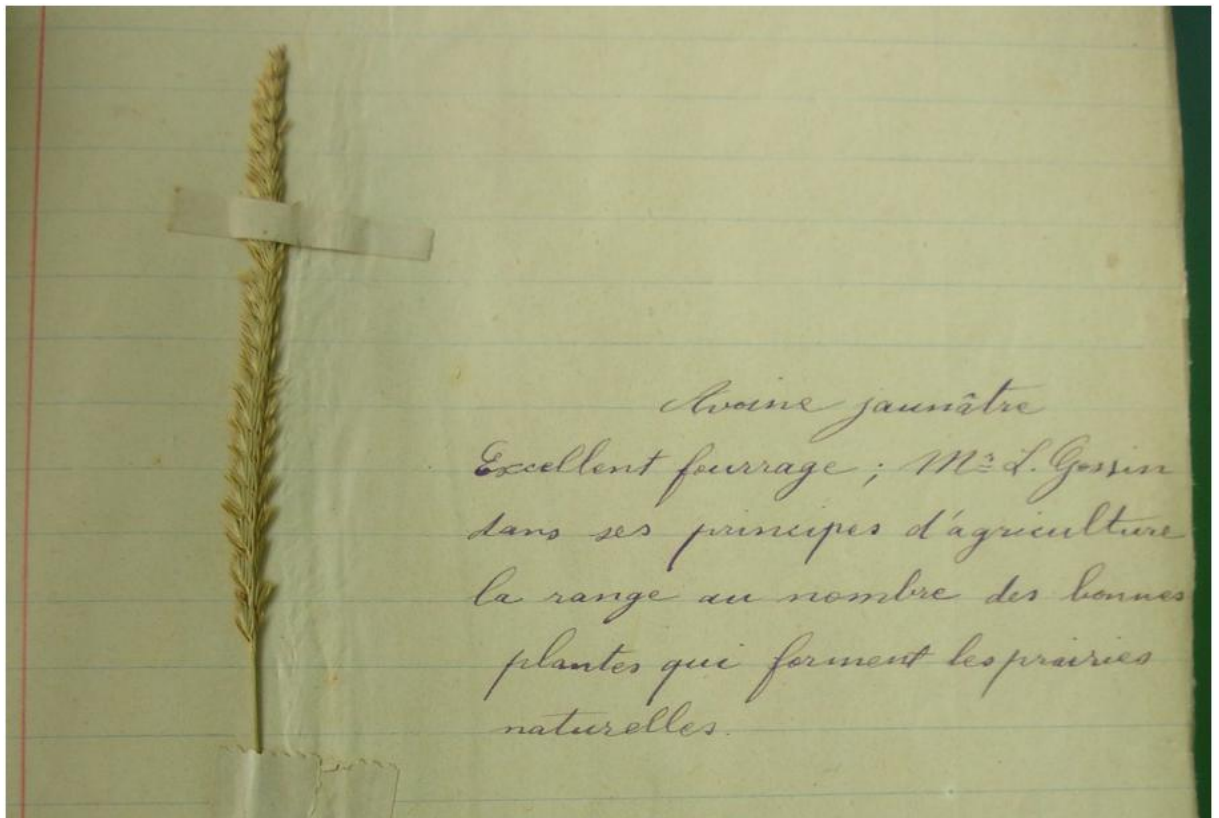 Avoine jaunâtre
Excellent fourrage ; Mr L. Gossin
dans ses principes d'agriculture
la range au nombre des bonnes
plantes qui forment les prairies
naturelles.